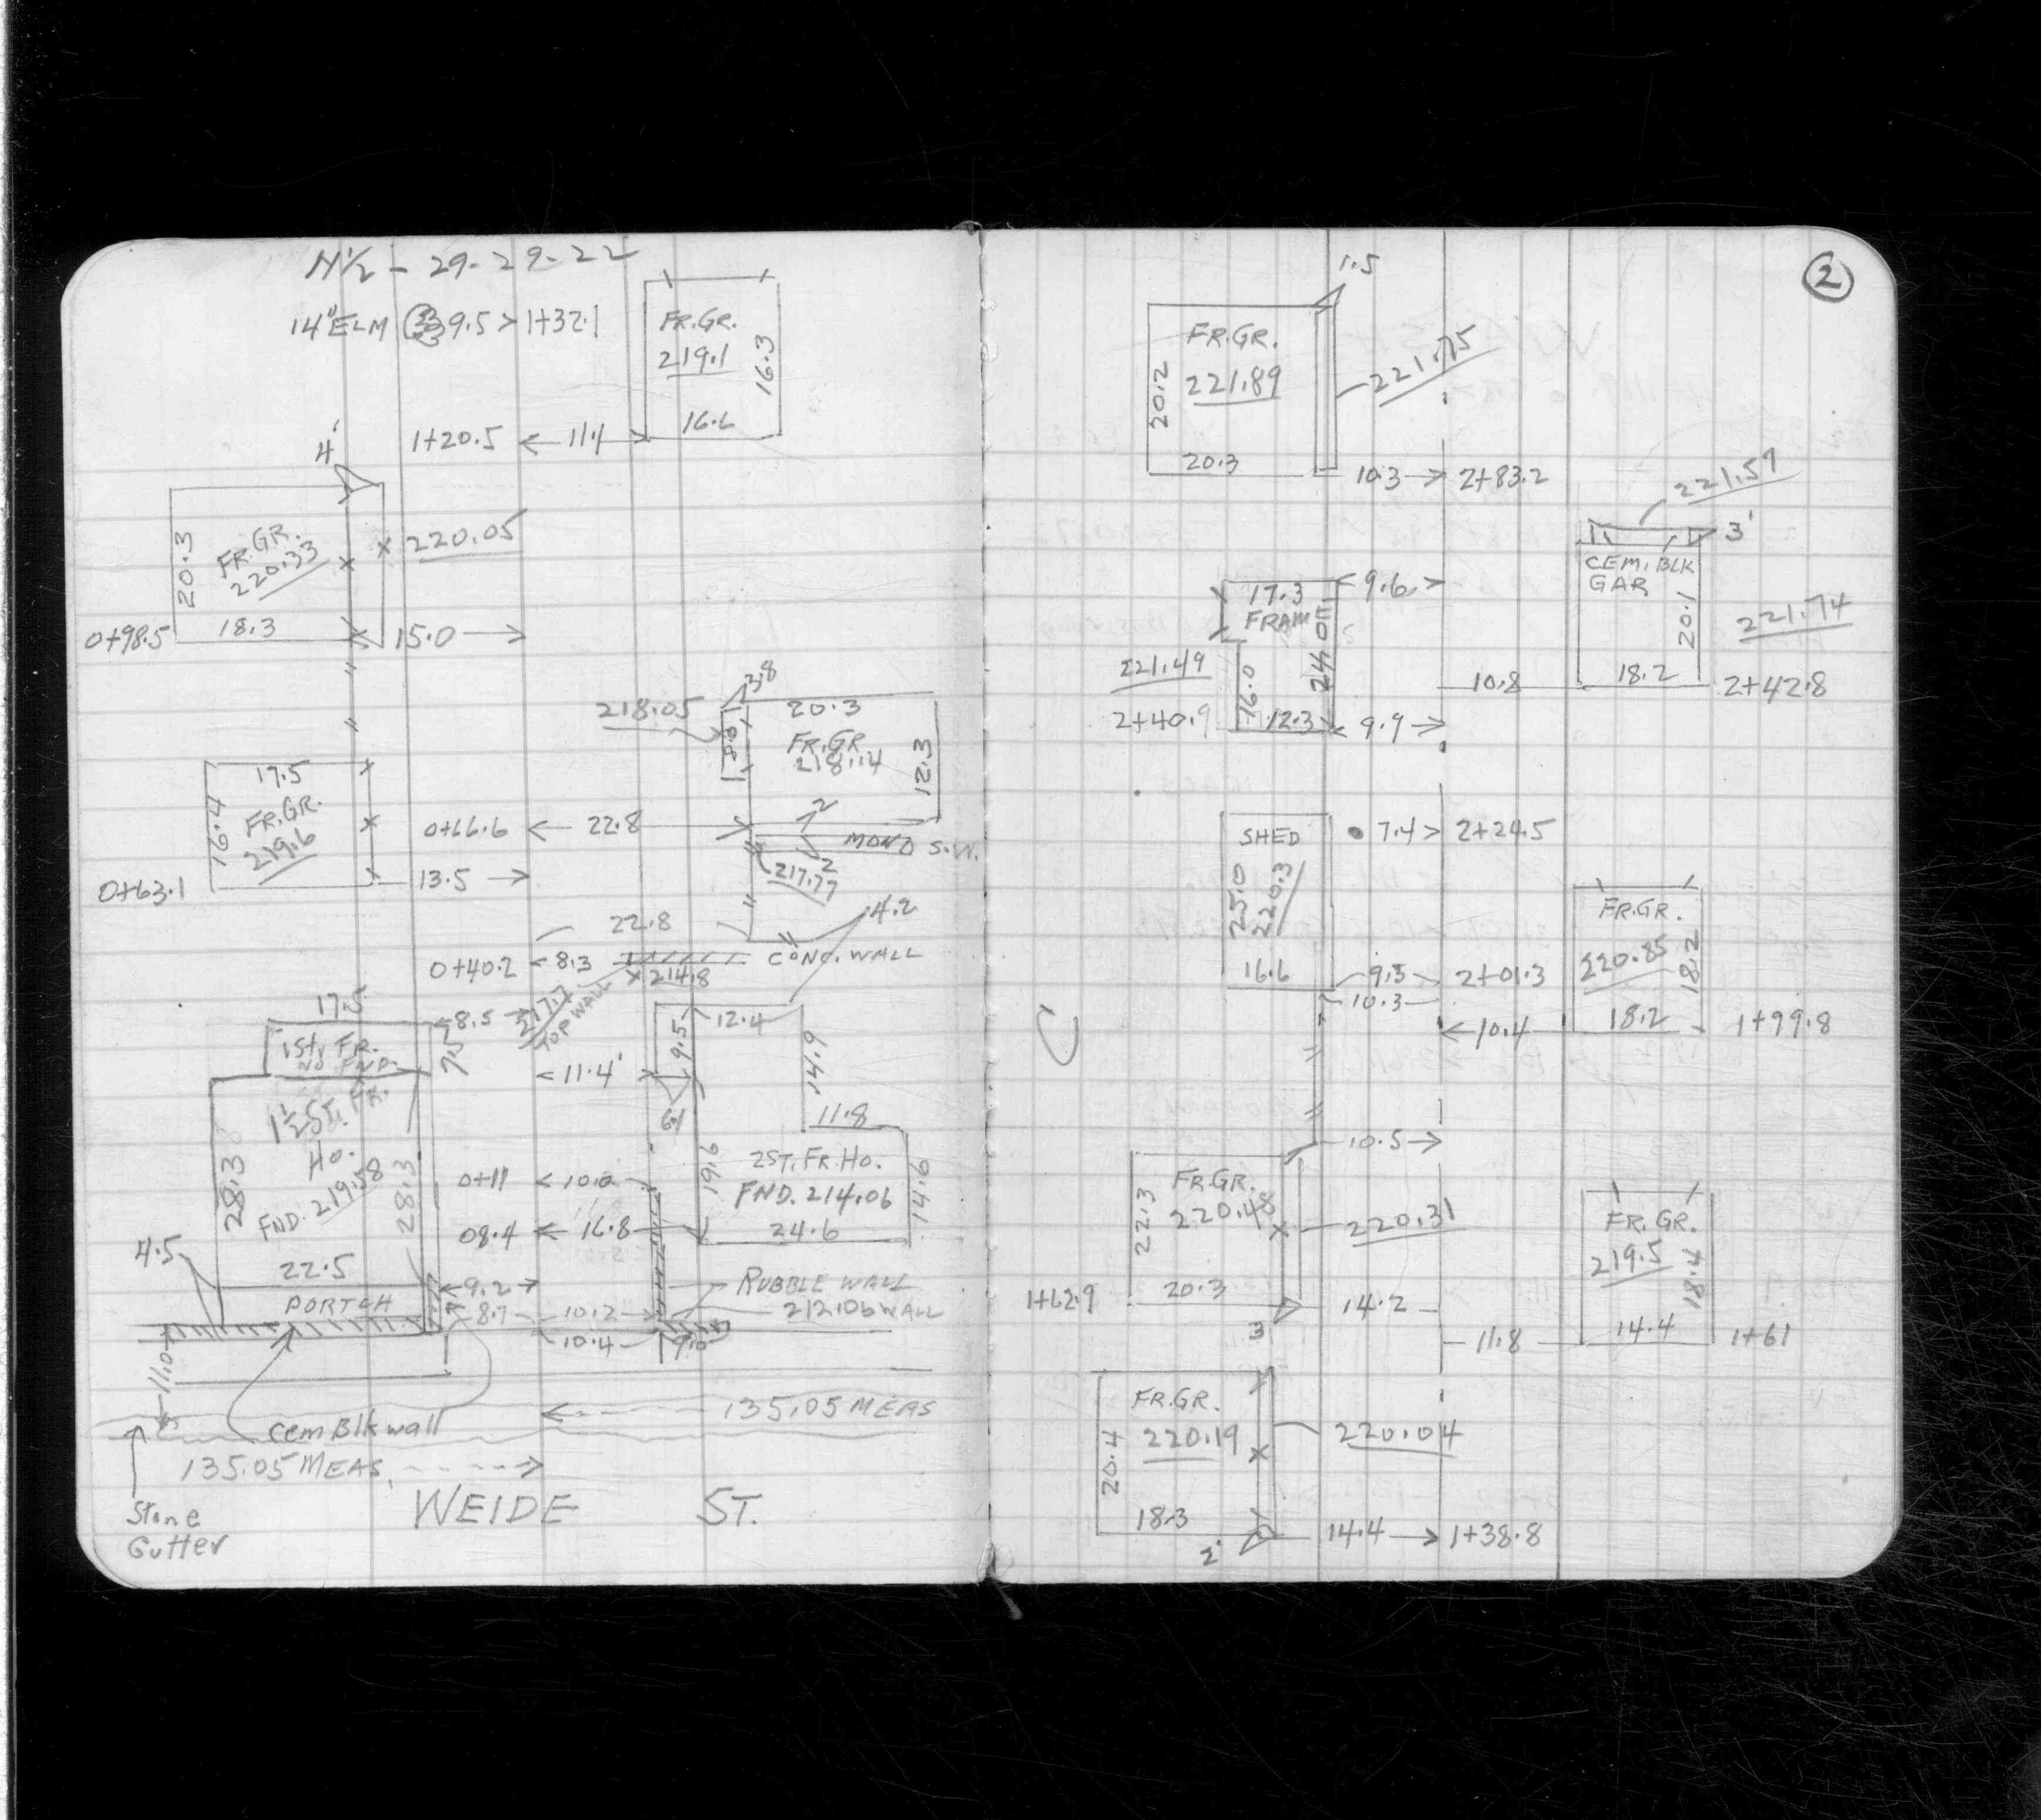 N½ - 29-29-22
14"ELM 9.5 > 1+32.1
FR.GR.
219.1
16.3
16.6
1+20.5 ← 11.4
4'
20.3
FR.GR.
220.33
220.05
18.3
0+98.5
15.0 →
3.8
218.05
20.3
FR.GR
218.14
12.3
17.5
16.4
FR.GR.
219.6
0+66.6 ← 22.8
2
MONO S.W.
2
217.77
0+63.1
13.5 →
4.2
22.8
0+40.2 < 8.3
× 214.8
CONC. WALL
217.7
TOP WALL
17.5
8.5
1 St, FR.
NO FND.
7.5
12.4
9.5
14.9
← 11.4'
11.8
1½ ST. FR.
HO.
FND. 219.58
28.3
28.3
22.5
19.6
2 ST. FR. HO.
FND. 214.06
14.6
24.6
0+11 ← 10.0
08.4 ← 16.8
4.5
PORTCH
← 9.2 →
8.7
10.2
RUBBLE WALL
212.06 WALL
10.4
9.0
11.0
135.05 MEAS
Cem Blk wall
135.05 MEAS. →
Stone
Gutter
WEIDE ST.
2
1.5
FR.GR.
221.89
20.2
20.3
221.75
10.3 → 2+83.2
221.57
3'
CEM. BLK
GAR
20.1
221.74
18.2
10.8
2+42.8
17.3
FRAME
24.0
← 9.6 →
221.49
16.0
2+40.9
12.3
← 9.9 →
SHED
7.4 > 2+24.5
25.0
220.3
16.6
9.5
2+01.3
10.3
FR.GR.
220.85
18.2
18.2
← 10.4
1+99.8
10.5 →
FR.GR.
220.48
22.3
220.31
20.3
1+62.9
14.2
3
FR. GR.
219.5
18.4
14.4
11.8
1+61
FR.GR.
220.19
20.4
220.04
18.3
2'
14.4 → 1+38.8